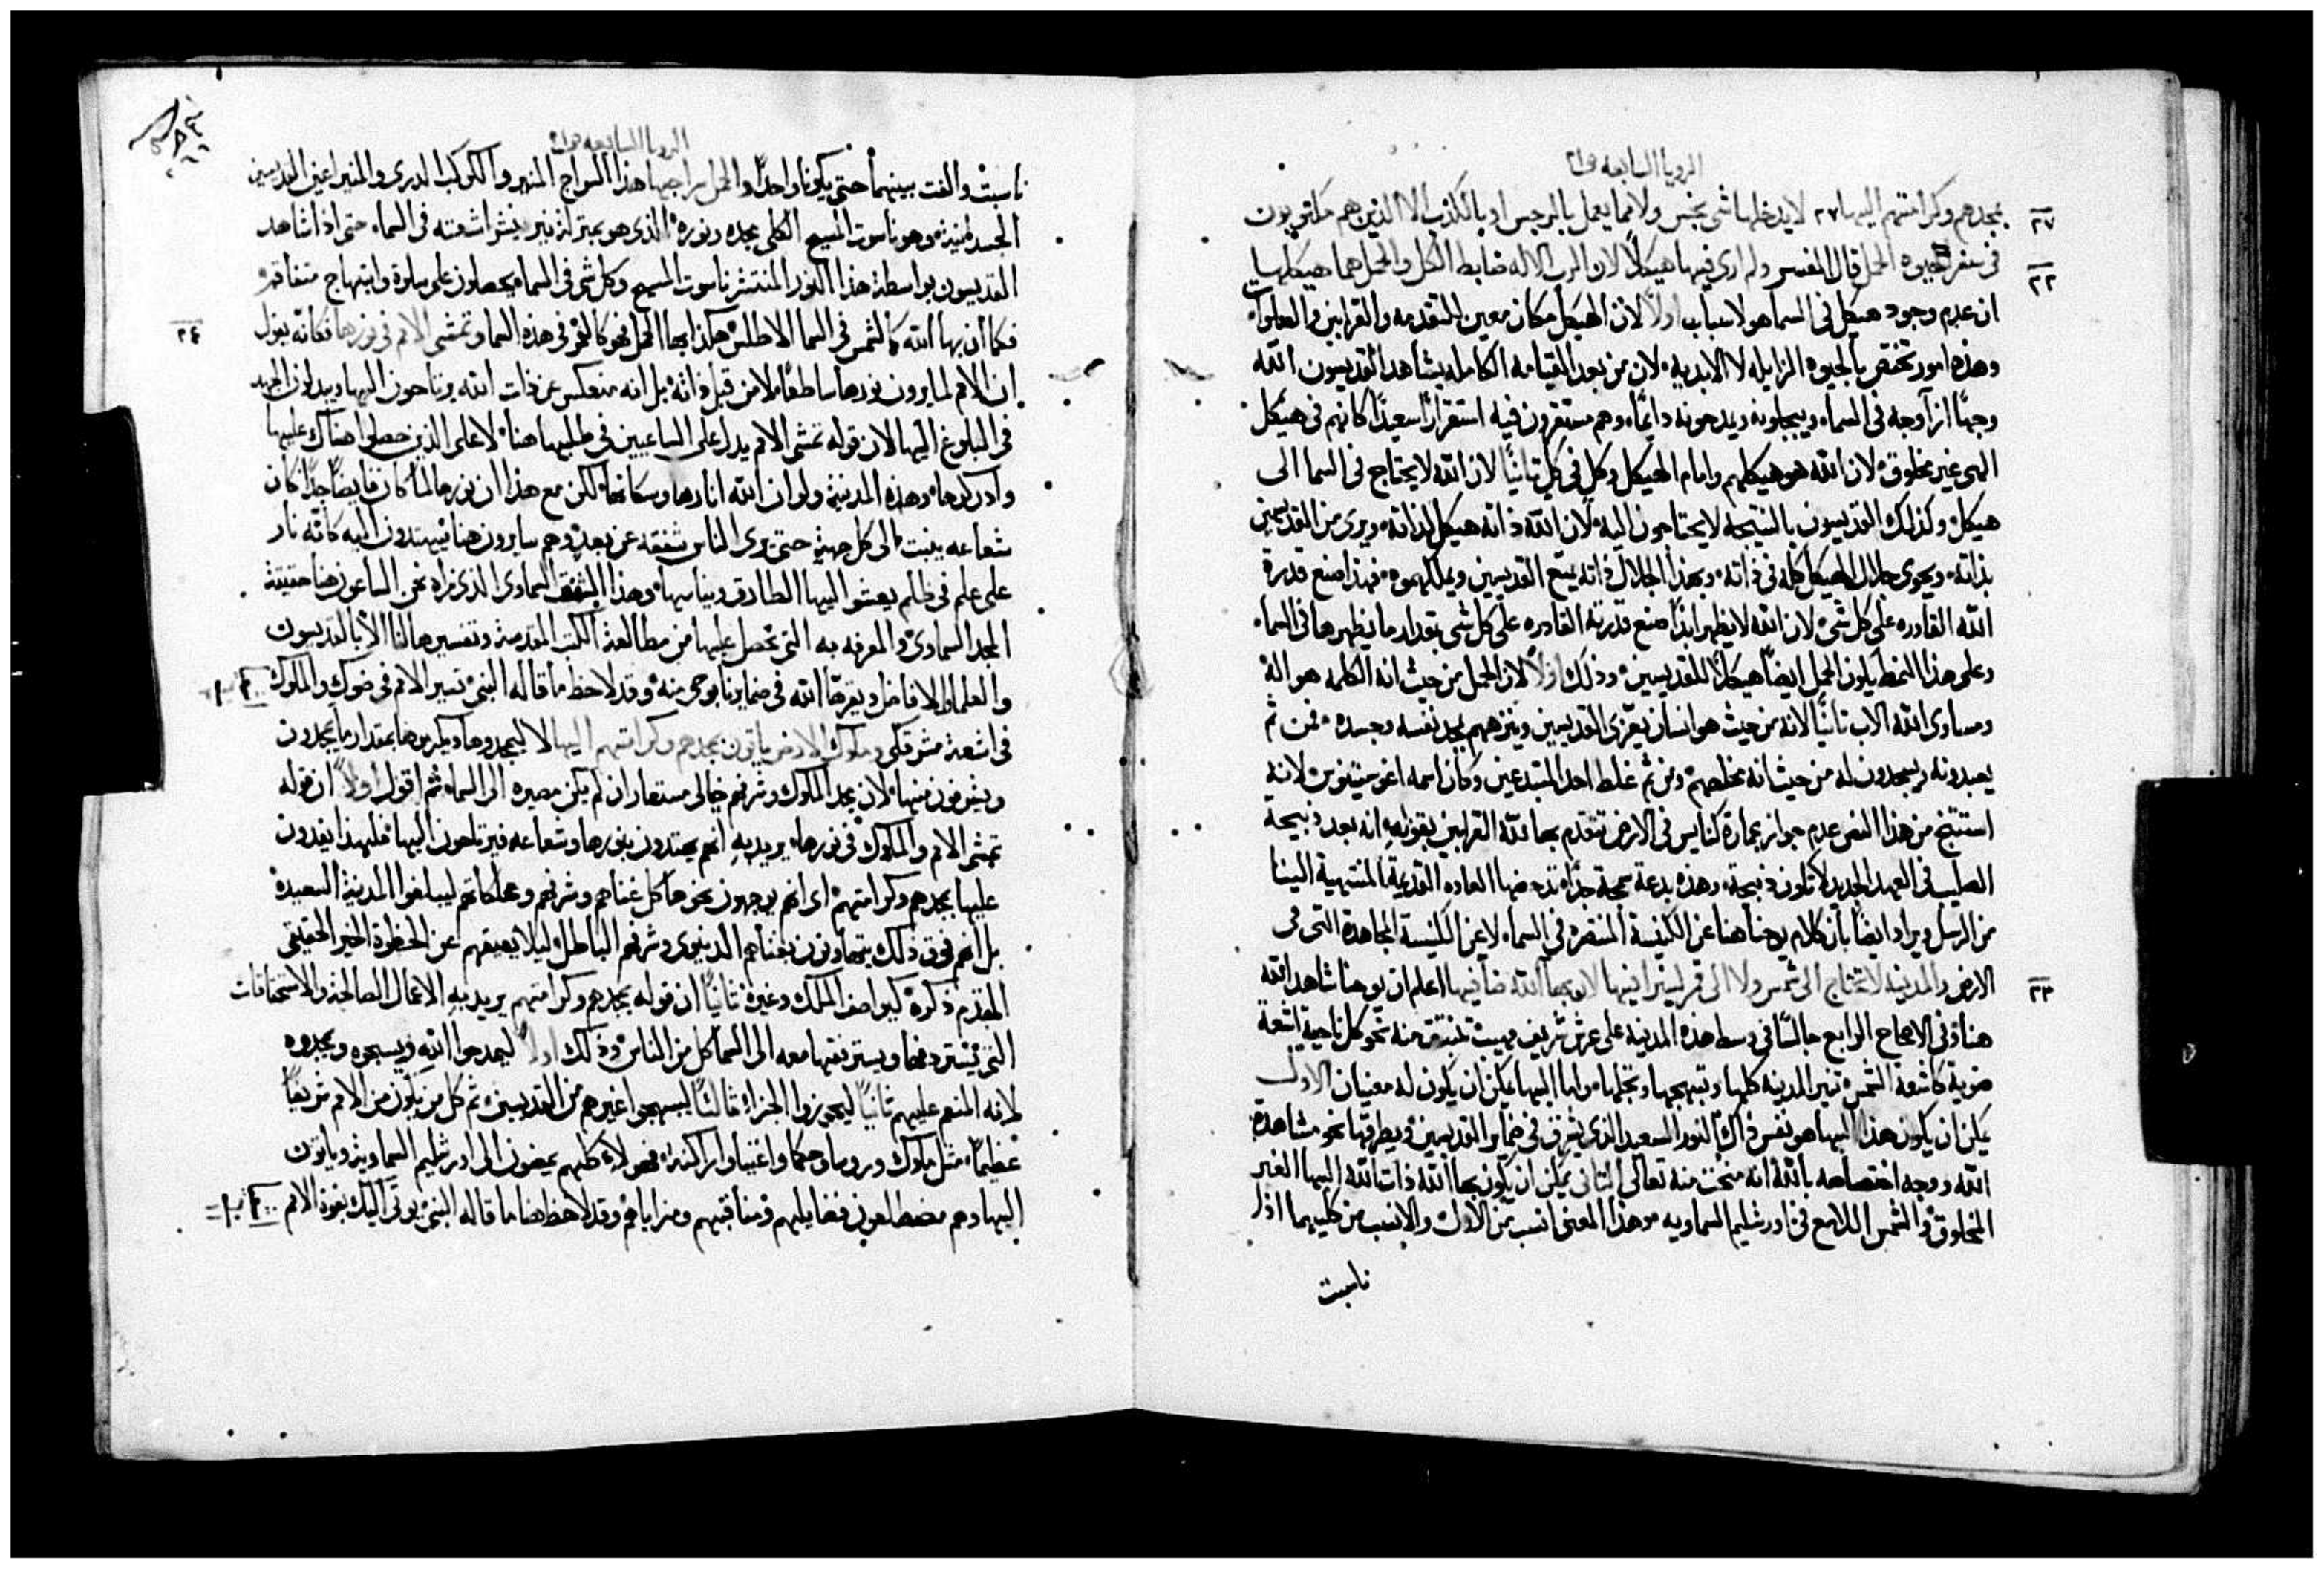 الرويا السابعه ص٢١
بمجدهم وكرامتهم اليها ٢٧ لا يدخلها شى نجس ولا مما يعمل بالرجس او بالكذب الا الذين هم مكتوبون
٢٧
فى سفر حيوه الحمل قال المفسر ولم ارى فيها هيكلاً لان الرب الاله ضابط الكل والحمل هما هيكلها
٢٢
ان عدم وجود هيكل فى السما هو لاسباب اولاً لان الهيكل مكان معين للتقدمه والقرابين والصلوات
وهذه امور تختص بالحيوه الزايله لا الابديه لان من بعد القيامه الكامله يشاهد القديسون الله
وجهاً ازآ وجه فى السماء ويبجلونه ويمدحونه دايماً وهم مستقرون فيه استقراراً سعيداً كانهم فى هيكل
الهى غير مخلوق لان الله هو هيكلهم وامام الهيكل وكل فى كل ثانياً لان الله لا يحتاج فى السما الى
هيكل وكذلك القديسون بالنتيجه لا يحتاجون اليه لان الله ذاته هيكل لذاته ويرى من القديسين
بذاته ويحوى جلال الهيكل كله فى ذاته وبهذا الجلال ذاته يمتع القديسين ويملكهموه فهذا صنع قدرة
الله القادره على كل شى لان الله لا يظهر ابداً صنع قدرته القادره على كل شى بقدار ما يظهرها فى السماء
وعلى هذا النمط يكون الحمل ايضاً هيكلاً للقديسين وذلك اولاً لان الحمل من حيث انه الكلمه هو اله
ومساوى الله الاب ثانياً لانه من حيث هو انسان يعزى القديسين وينزههم بمجد نفسه وجسده فمن ثم
يعبدونه ويسجدون له من حيث انه مخلصهم ومن ثم غلط احد المبتدعين وكان اسمه اغوستينوس لانه
استنتج من هذا النص عدم جواز عمارة كنايس فى الارض تتقدم بها لله القرابين بقوله انه بعد ذبيحة
الصليب فى العهد الجديد لا تكون ذبيحة وهذه بدعة سمجة جداً تدحضها العاده القديمة المنتهية الينا
من الرسل ويراد ايضاً بان كلام يوحنا هنا عن الكنيسة المنتصره فى السماء لا عن الكنيسة المجاهدة التى فى
الارض والمدينه لا تحتاج الى شمس ولا الى قمر لينيرا فيها لان بهآ الله ضآ فيها اعلم ان يوحنا شاهد الله
٢٣
هنا وفى الاصحاح الرابع جالساً فى وسط هذه المدينه على عرش شريف بحيث تنبثق منه نحو كل ناحية اشعة
ضوية كاشعة الشمس تنير المدينه كلها وتبهجها وتجلها واما البها يمكن ان يكون له معنيان الاول
يمكن ان يكون هذا البها هو نفس ذاك النور السعيد الذى يشرق فى ضماير القديسين ويطرقها نحو مشاهدة
الله ووجه اختصاصه بالله انه منحت منه تعالى الثانى يمكن ان يكون بها الله ذات الله البها الغير
المخلوق والشمس اللامع فى اورشليم السماويه وهذا المعنى انسب من الاول والانسب من كليهما اذا
ناسبت
الرويا السابعه ص٢١
ناسبت والفت بينهما حتى يكونا واحداً والحمل سراجها هذا السراج المنير والكوكب الدرى والمنير اعين القديسين
الجسدانية وهو ناسوت المسيح الكلى مجده ونوره الذى هو بمنزلة نير ينشر اشعته فى السماء حتى اذا شاهد
القديسون بواسطة هذا النور المنتشر ناسوت المسيح وكل شى فى السما يحصلون على سلوة وابتهاج متفاقم
فكما ان بها الله كالشمس فى السما الاطلس هكذا بها الحمل فهو كالقمر فى هذه السما وتمشى الامم فى نورها فكانه يقول
٢٤
ان الامم لما يرون نورها ساطعاً لا من قبل ذاته بل انه منعكس عن ذات الله يرتاحون اليها ويبذلون الجهد
فى البلوغ اليها لان قوله تمشى الامم يدل على الساعيين فى طلبها هنا لا على الذين حصلوا هناك عليها
وادركوها وهذه المدينة ولو ان الله انارها وسكانها لكن مع هذا ان نورها لما كان فايضاً جداً كان
شعاعه ينبت الى كل جهة حتى يرى الناس شفقه عن بعد وهم سايرون هنا فيهتدون اليه كانه نار
على علم فى ظلم يعشو اليها الطارق ويناسبها وهذا الشفق السماوى الذى نراه نحن الساعون هنا حقيقة
المجد السماوى والمعرفه به التى نحصل عليها من مطالعة الكتب المقدسة وتفسيرها لنا الابآ القديسون
والعلما والافاضل ويقرها الله فى ضمايرنا بوحى منه وقد لاحظ ما قاله النبى تسير الامم فى ضوك والملوك
فى اشعة مشرقكى وملوك الارض ياتون بمجدهم وكرامتهم اليها لا ليمجدوها ويكرموها بمقدار ما يمجدون
ويشرفون منها لان مجد الملوك وشرفهم خيالى مستعار ان لم يكن مصيره الى السماء ثم اقول اولاً ان قوله
تمشى الامم والملوك فى نورها يريد به انهم يهتدون بنورها وشعاعه فيرتاحون اليها فلهذا يفدون
عليها بمجدهم وكرامتهم اى انهم يوجهون نحوها كل غناهم وشرفهم وممالكهم ليبلغوا المدينة السعيدة
بل انهم فوق ذلك يتهاونون بغناهم الدينوى وشرفهم الباطل ليلا يعيقهم عن الحظوة الخير الحقيقى
المقدم ذكره كيواصف الملك وغيره ثانياً ان قوله بمجدهم وكرامتهم يريد به الاعمال الصالحة والاستحقاقات
التى تستردفها ويسترفقها معه الى السما كل من الناس وذلك اولاً ليمدحوا الله ويسبحوه ويمجدوه
لانه المنعم عليهم ثانياً ليحوزوا الجزاء ثالثاً ليبهجوا غيرهم من القديسين ثم كل من يكون من الامم شريفاً
عظيماً مثل ملوك وروسا وحكما واغنيا واراكنه فهولاء كلهم يمضون الى اورشليم السماوية وياتون
اليها وهم مضطلعون بفضايلهم ومناقبهم ومزاياهم وقد لاحظ هنا ما قاله النبى يوتى اليك بقوة الامم